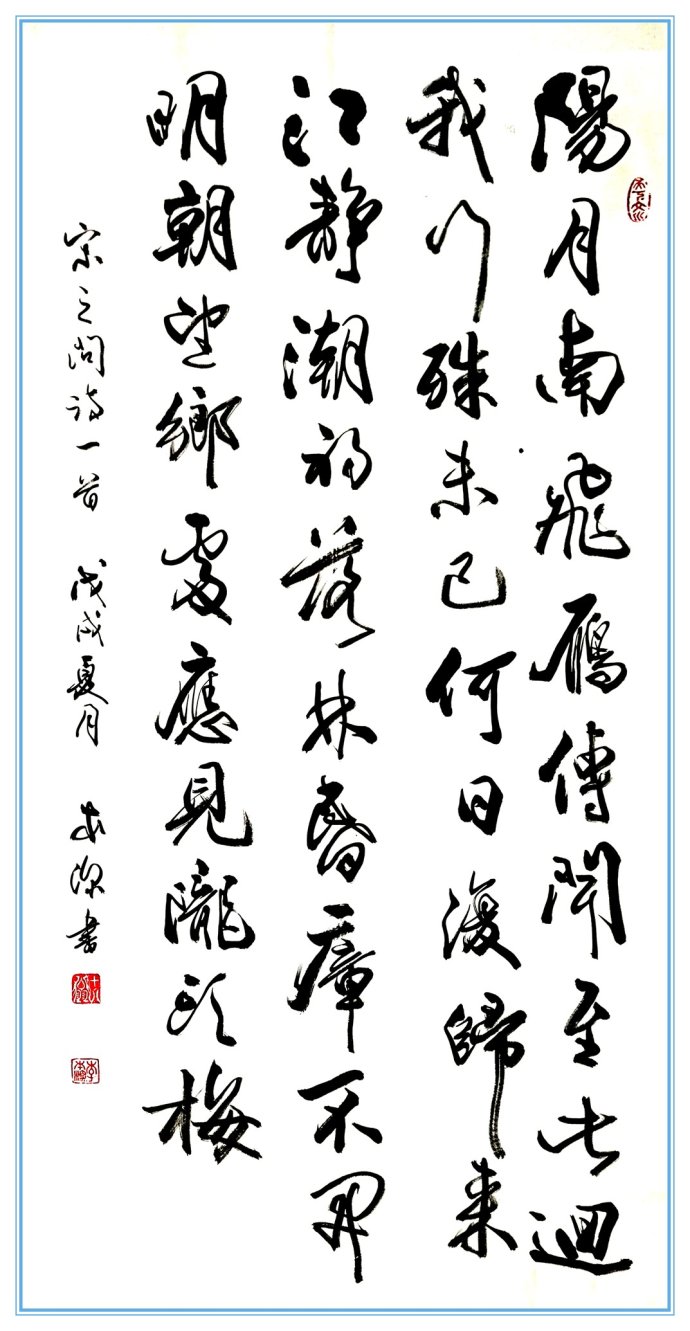 陽月南飛鴈傳聞至此迴
我行殊未已何日復歸來
江靜潮初落林昏瘴不開
明朝望鄉處應見隴頭梅
宋之問詩一首 戊戌夏月 書